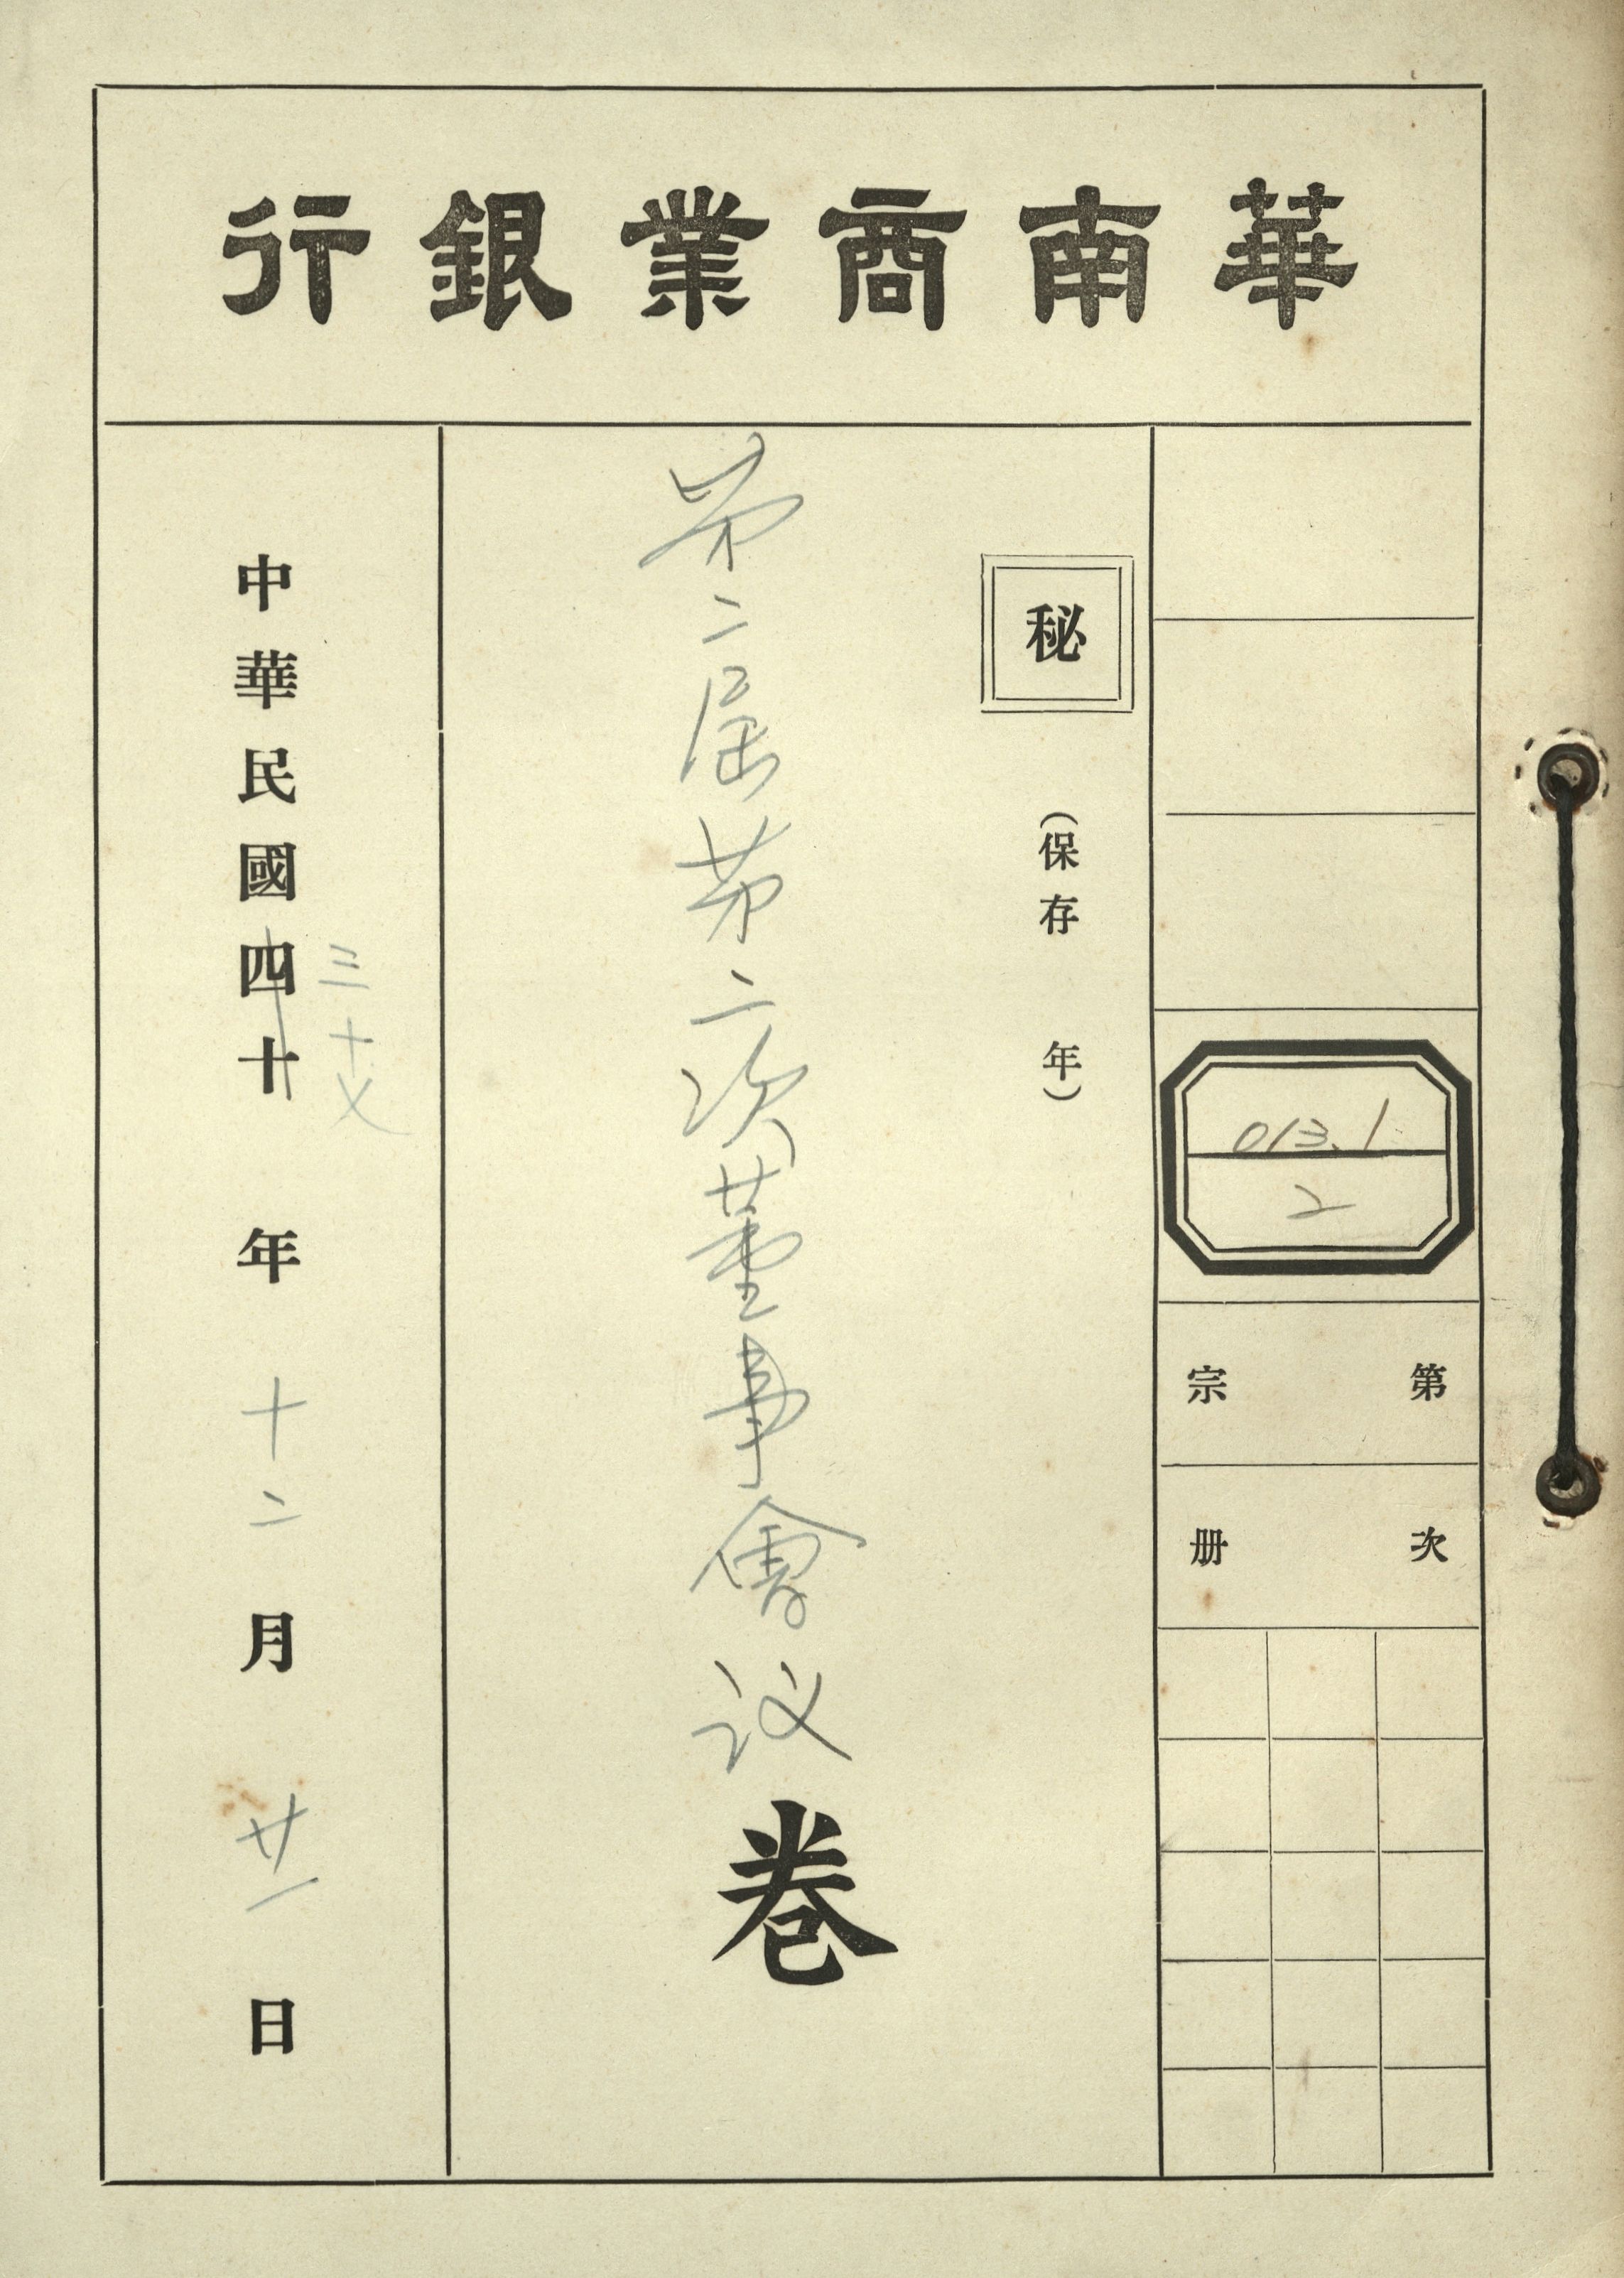 華南商業銀行
013.1
2
第 宗
次 册
秘
(保存 年)
第二屆第二次董事會议卷
三十七
中華民國四十 年 十二 月 廿一 日